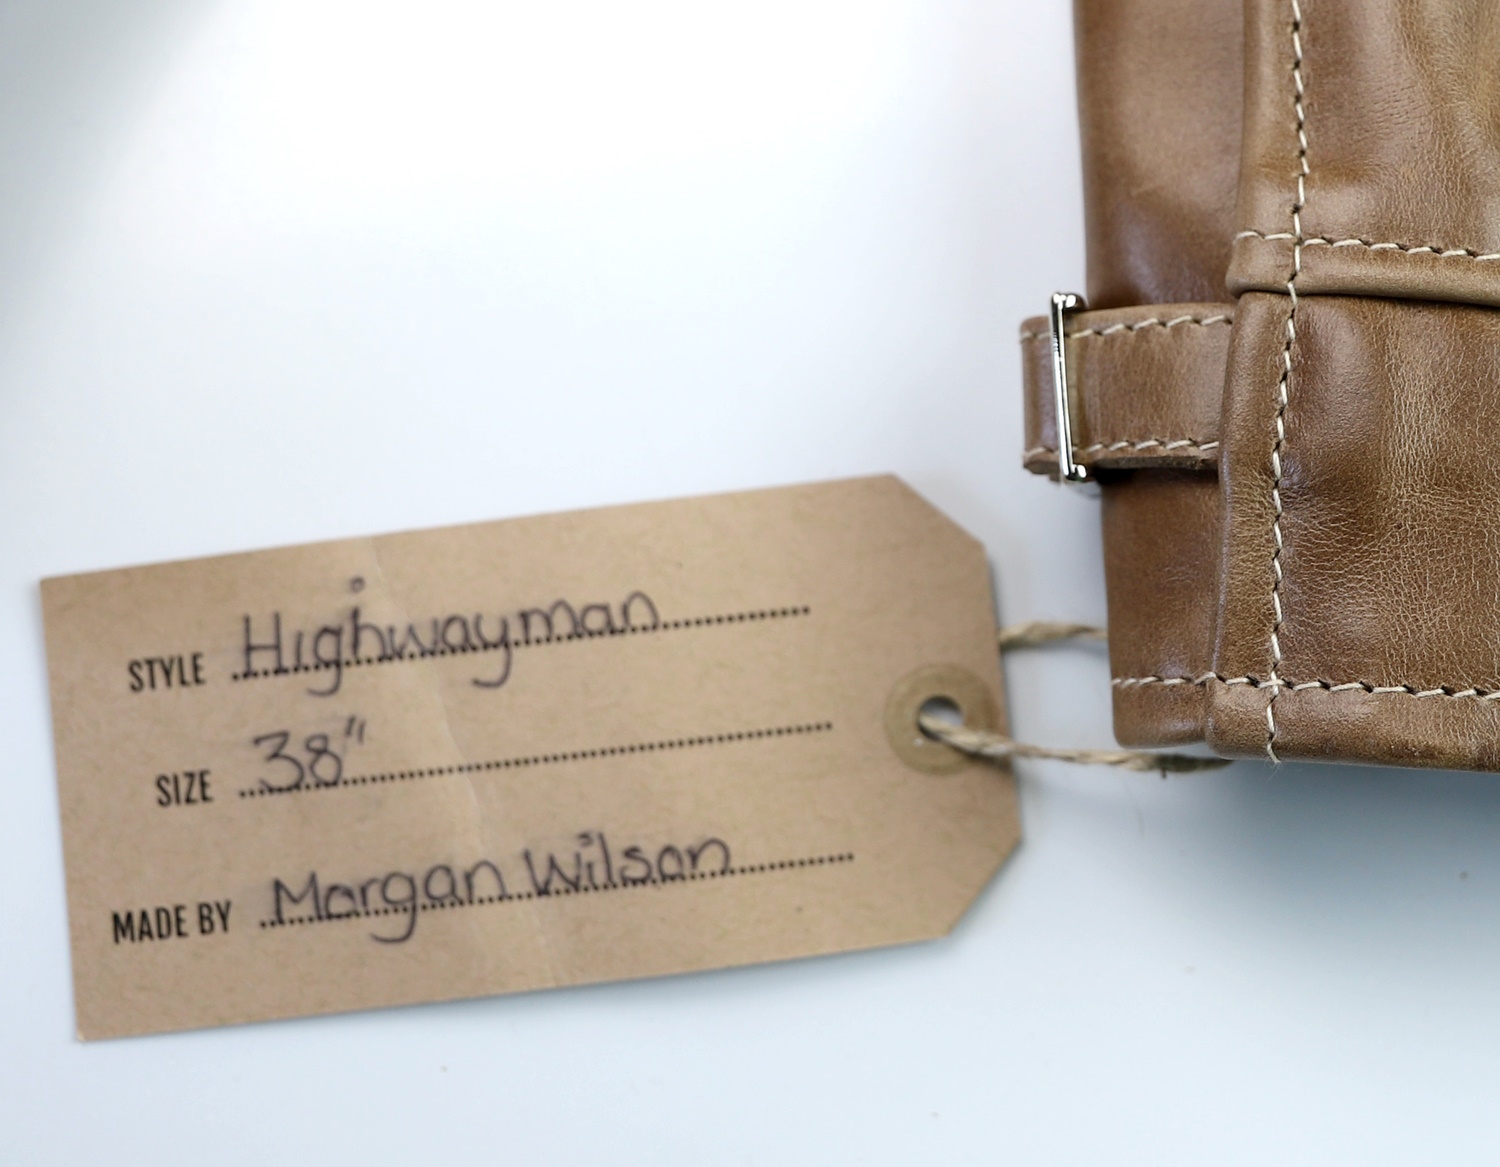 STYLE Highwayman
SIZE 38"
MADE BY Morgan Wilson